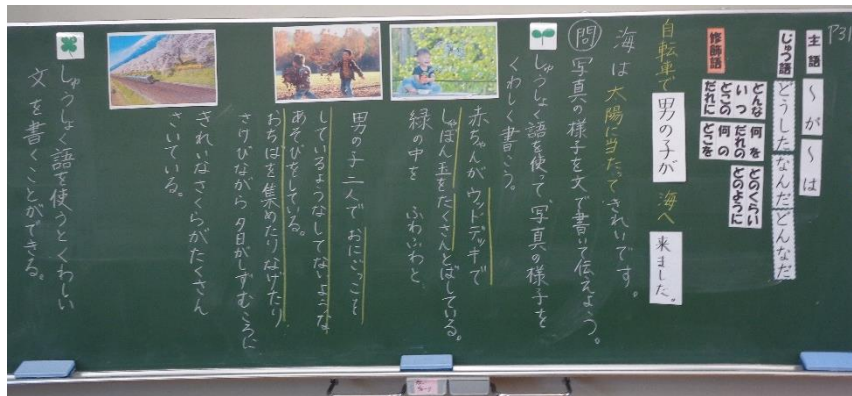 P31
主語
〜が
〜は
じゅつ語
どうした
なんだ
どんなだ
修飾語
どんな
いつ
どこの
だれに
何を
だれの
何の
どこを
どのくらい
どのように
自転車で 男の子が 海へ 来ました。
海は太陽に当たってきれいです。
問 写真の様子を文で書いて伝えよう。
しゅうしょく語を使って、写真の様子を
くわしく書こう。
赤ちゃんがウッドデッキで
しゃぼん玉をたくさんとばしている。
緑の中を ふわふわと
男の子二人で おにごっこを
しているようなしてないような
あそびをしている。
おちばを集めたりなげたり
さけびながら夕日がしずむころに
きれいなさくらがたくさん
さいている。
しゅうしょく語を使うとくわしい
文を書くことができる。